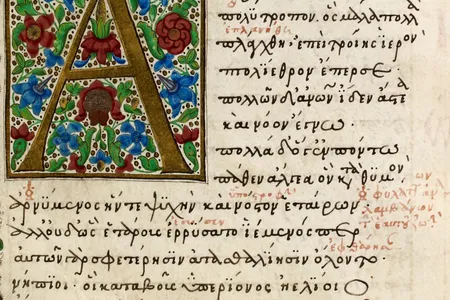 Α
πολύτροπον. ὃς μάλα πολλὰ
ἐπλανήθη
πλάγχθη. ἐπεὶ τροίης ἱερὸν
πτολίεθρον ἔπερσε
πολλῶν δ' ἀνθρώπων ἴδεν ἄστεα
καὶ νόον ἔγνω.
πολλὰ δ' ὅγ' ἐν πόντω
πάθεν ἄλγεα ὃν κατὰ θυμόν
ἀρνύμενος ἥν τε ψυχὴν καὶ νόστον ἑταίρων.
ἀλλ' οὐδ' ὣς ἑτάρους ἐρρύσατο ἱέμενός περ
αὐτῶν γὰρ σφετέρησιν ἀτασθαλίησιν ὄλοντο
νήπιοι. οἳ κατὰ βοῦς ὑπερίονος ἠελίοιο